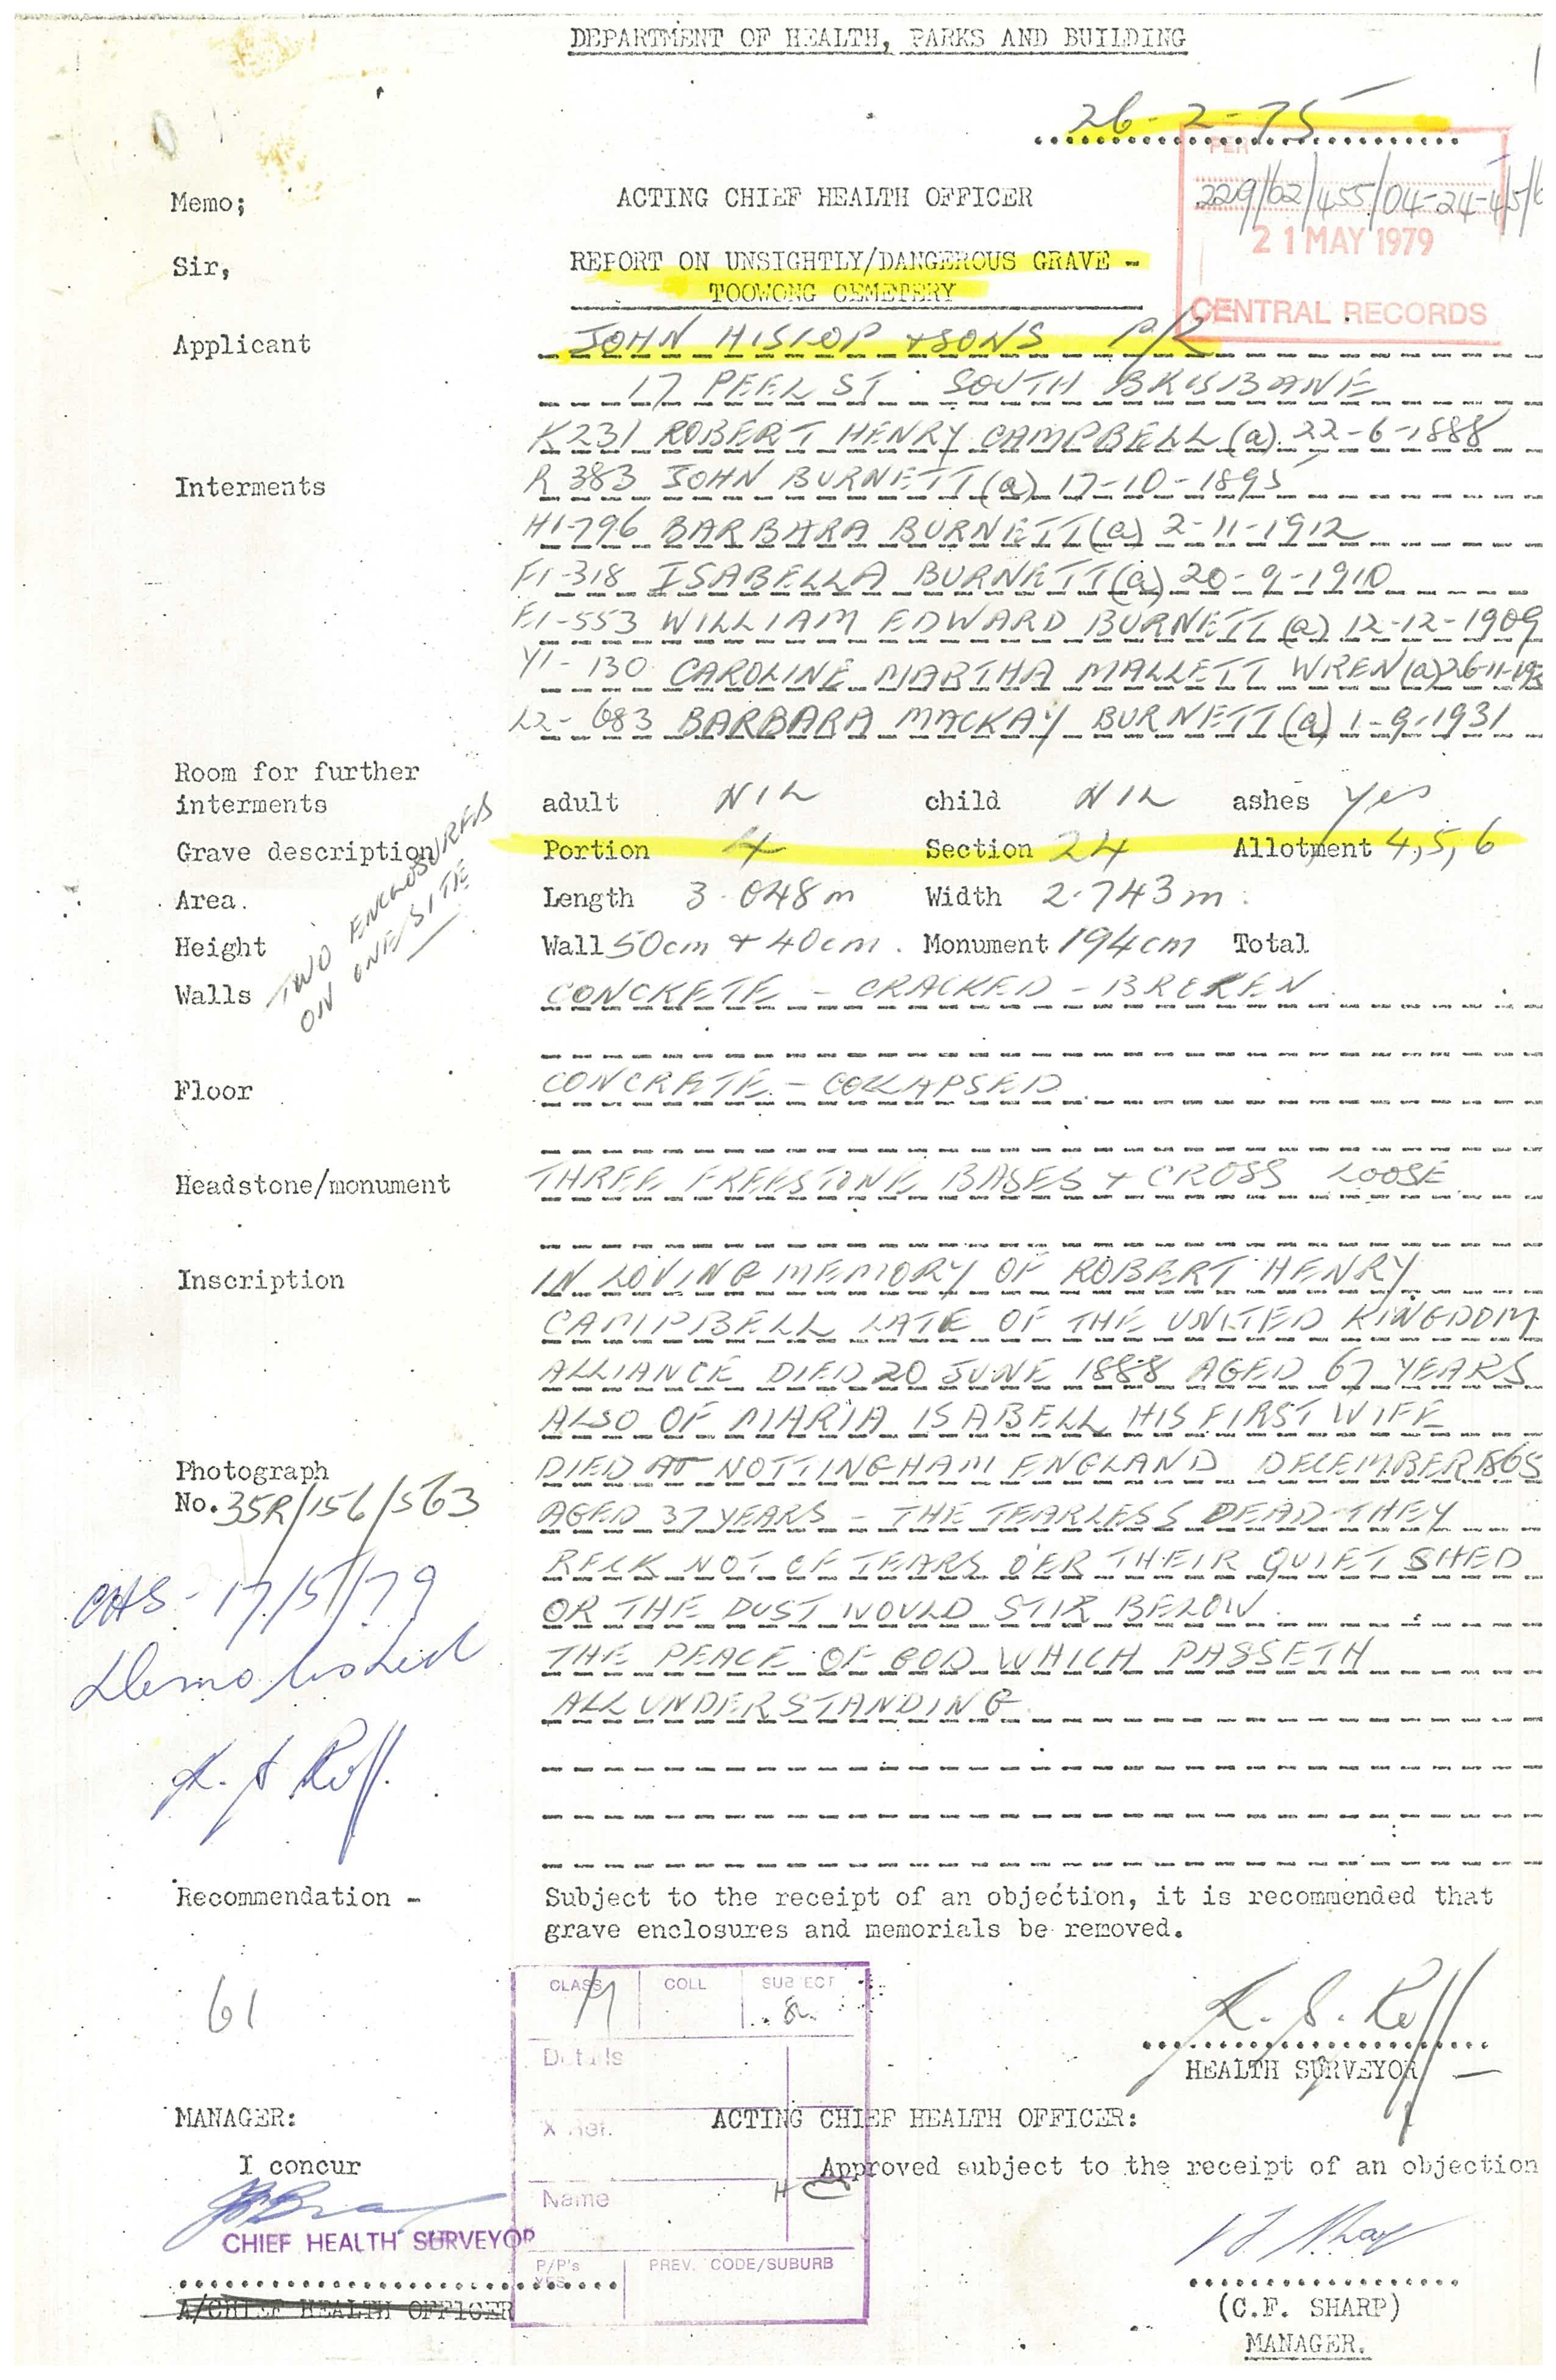 DEPARTMENT OF HEALTH, PARKS AND BUILDING
26-2-75
Memo;
ACTING CHIEF HEALTH OFFICER
229/62/455/04-24-4/5/6
21 MAY 1979
CENTRAL RECORDS
Sir,
REPORT ON UNSIGHTLY/DANGEROUS GRAVE -
TOOWONG CEMETERY
Applicant
JOHN HISLOP & SONS P/L
17 PEEL ST SOUTH BRISBANE
K231 ROBERT HENRY CAMPBELL (a) 22-6-1888
Interments
R 383 JOHN BURNETT (a) 17-10-1895
H1-796 BARBARA BURNETT (a) 2-11-1912
F1-318 ISABELLA BURNETT (a) 20-9-1910
E1-553 WILLIAM EDWARD BURNETT (a) 12-12-1909
Y1-130 CAROLINE MARTHA MALLETT WREN (a) 26-11-
L2-683 BARBARA MACKAY BURNETT (a) 1-9-1931
Room for further
interments
adult NIL child NIL ashes yes
Grave description
Portion 4 Section 24 Allotment 4, 5, 6
Area.
Length 3.048m Width 2.743m.
Height
Wall 50cm + 40cm. Monument 194cm Total
TWO ENCLOSURES
ON ONE SITE
Walls
CONCRETE - CRACKED - BROKEN
Floor
CONCRETE - COLLAPSED
Headstone/monument
THREE FREESTONE BASES + CROSS LOOSE
Inscription
IN LOVING MEMORY OF ROBERT HENRY
CAMPBELL LATE OF THE UNITED KINGDOM
ALLIANCE DIED 20 JUNE 1888 AGED 67 YEARS
ALSO OF MARIA ISABELL HIS FIRST WIFE
Photograph
DIED AT NOTTINGHAM ENGLAND DECEMBER 1865
No. 35R/156/563
AGED 37 YEARS - THE TEARLESS DEAD THEY
RECK NOT OF TEARS O'ER THEIR QUIET SHED
OR THE DUST WOULD STIR BELOW.
THE PEACE OF GOD WHICH PASSETH
ALL UNDERSTANDING
CHS - 17/5/79
Demolished
Recommendation -
Subject to the receipt of an objection, it is recommended that
grave enclosures and memorials be removed.
61
CLASS COLL SUBJECT
Details
X Ref.
Name
P/P's
YES
PREV. CODE/SUBURB
HEALTH SURVEYOR
MANAGER:
ACTING CHIEF HEALTH OFFICER:
I concur
Approved subject to the receipt of an objection
CHIEF HEALTH SURVEYOR
A/CHIEF HEALTH OFFICER
(C.F. SHARP)
MANAGER.